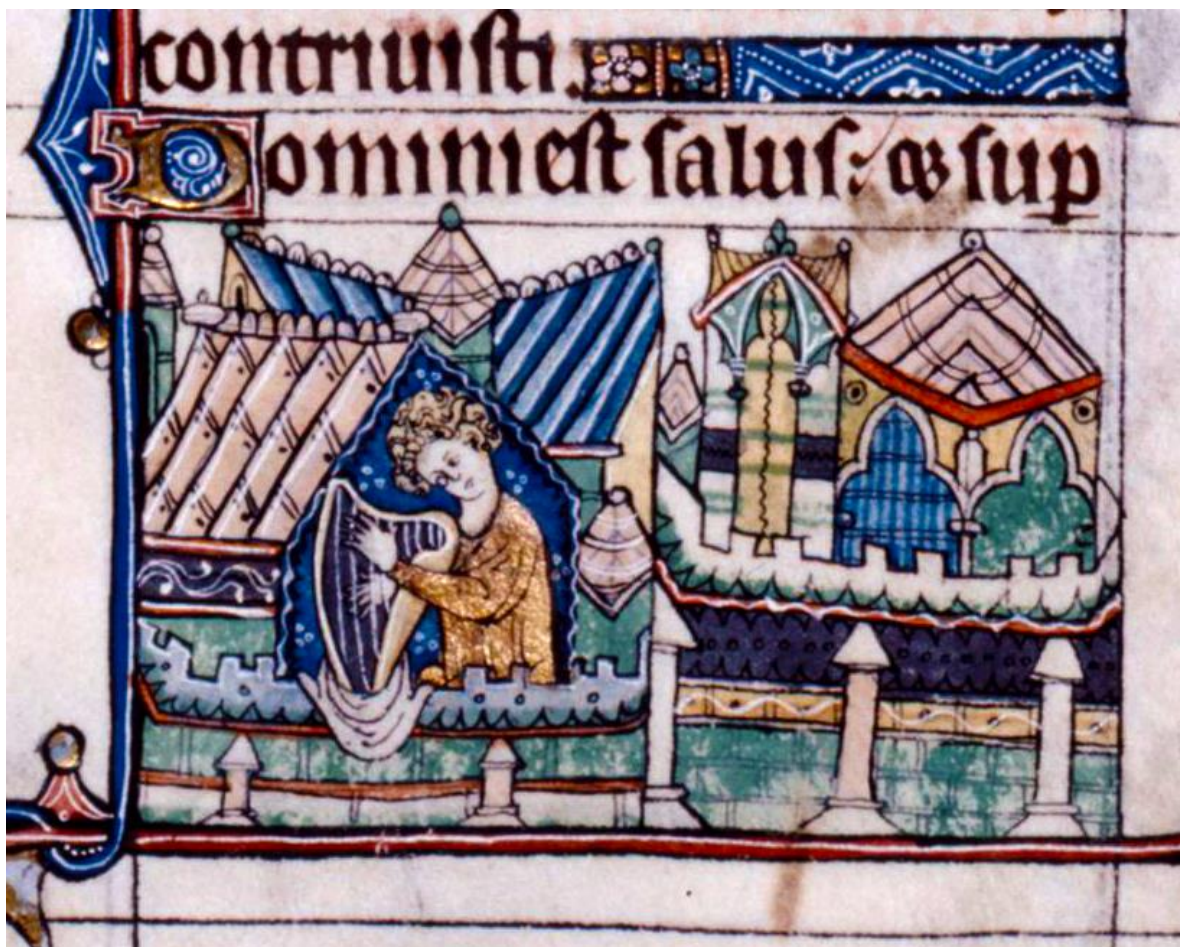 contriuisti.
Domini est salus: & suꝑ